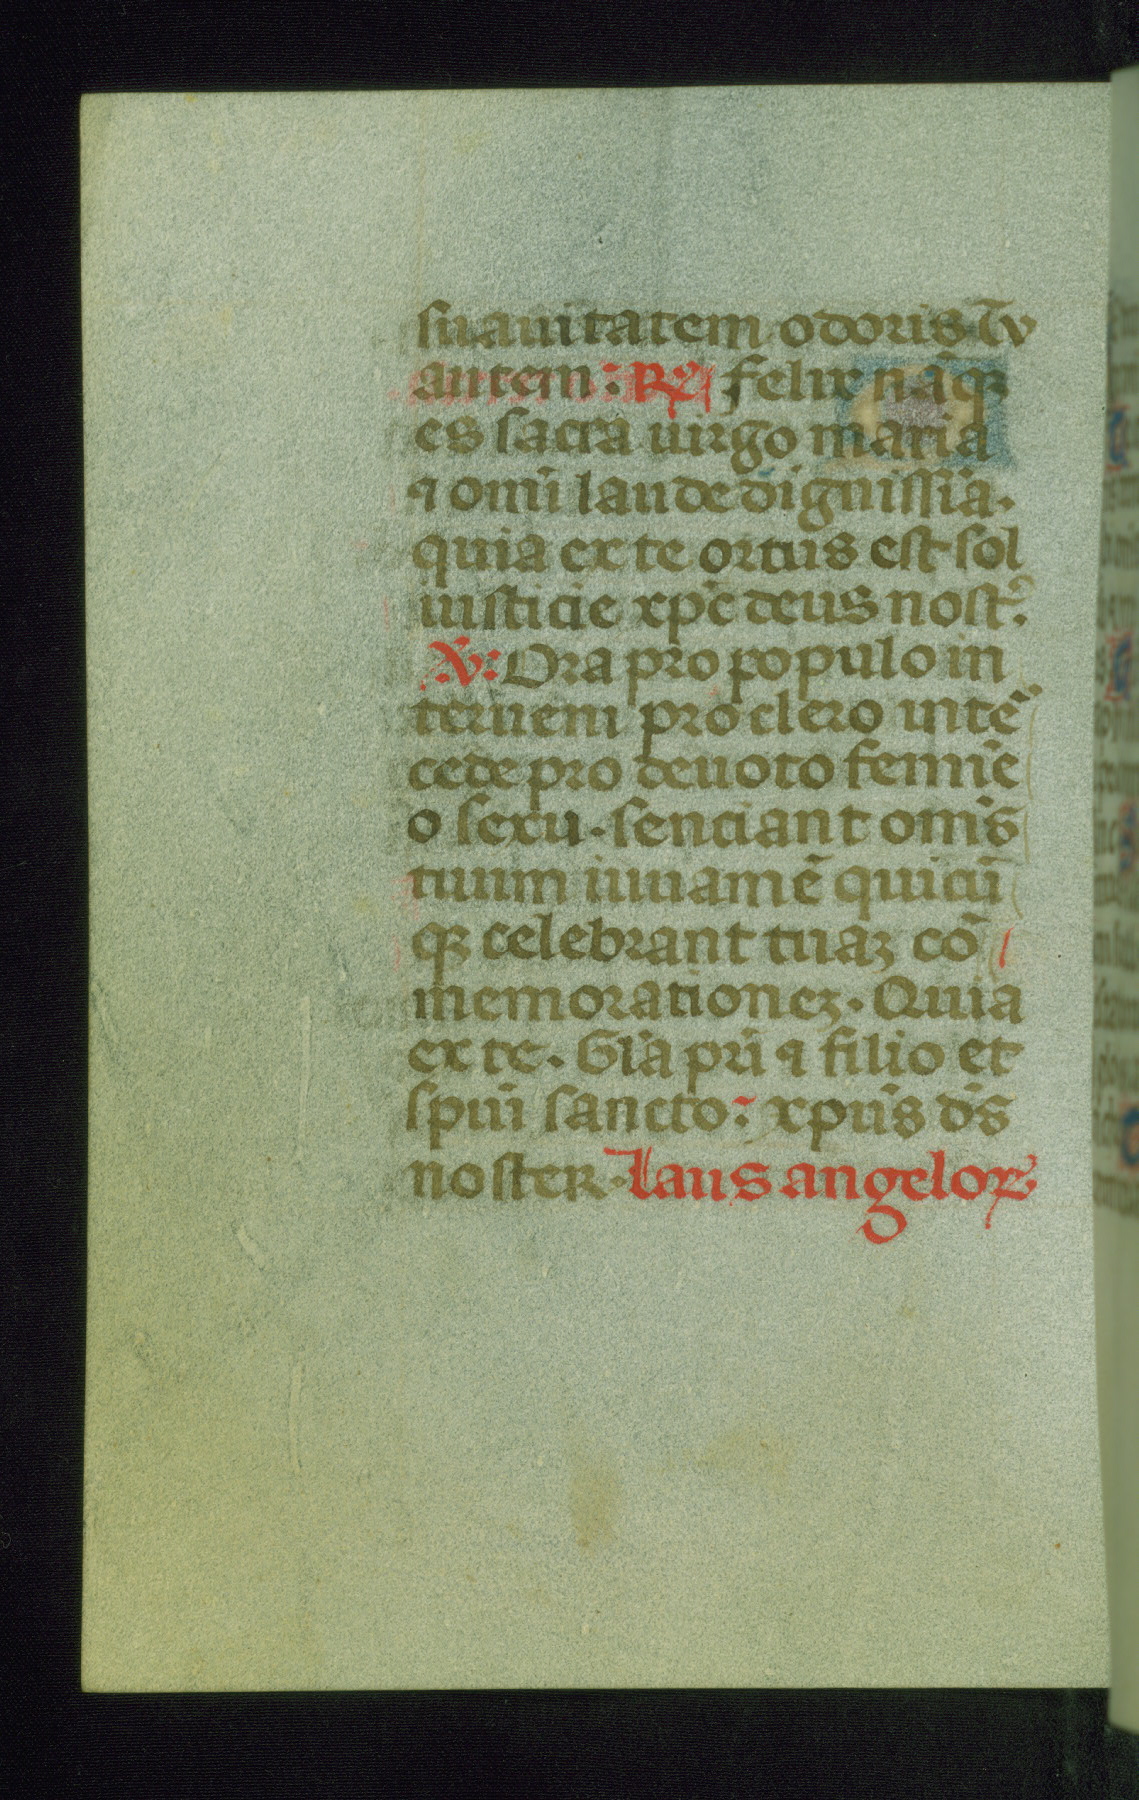 suauitatem odoris Tu
autem: R̃ felix nāqꝫ
es sacra uirgo maria
⁊ omĩ laude digniſſĩa.
quia ex te ortus est sol
iusticie xp̄c deus nosť.
V: Ora pro populo in
terueni pro clero intē
cede pro deuoto femīe
o sexu. senciant oms̄
tuum iuuamē quicū
qꝫ celebrant tuaꝫ cō
memorationeꝫ. Quia
ex te. Glā pr̄i ⁊ filio et
spūi sancto: xpūs dn̄s
noster. Laus angeloꝝ